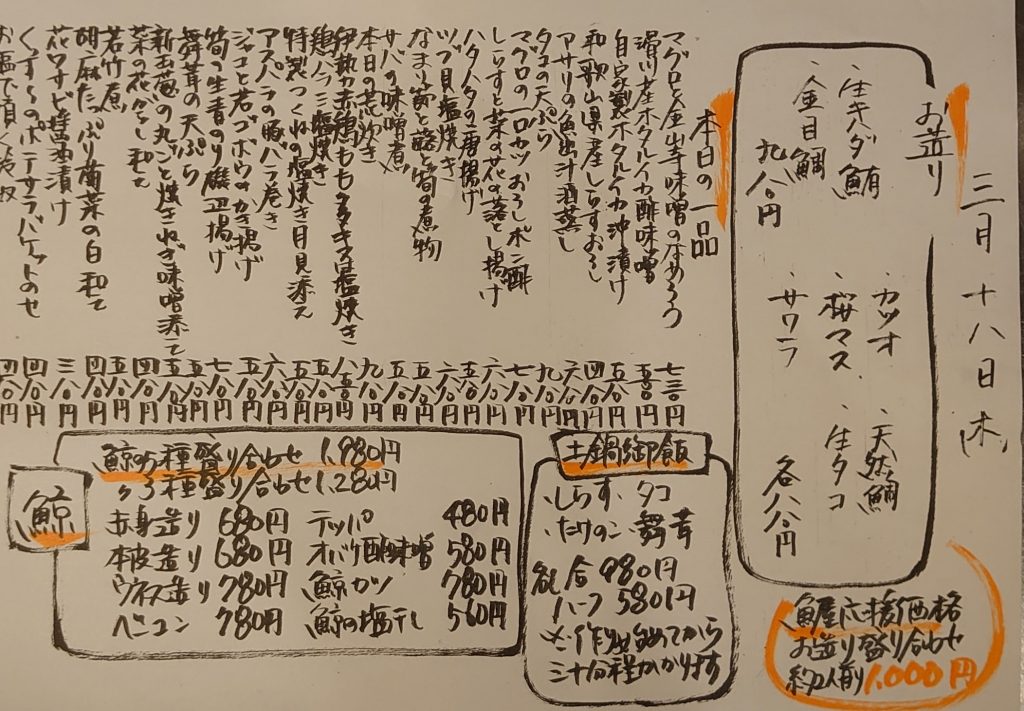 三月十八日(木)
お造り
・生キハダ鮪
・カツオ
・天然鯛
・金目鯛
・桜マス
・生タコ
九八〇円
・サワラ
各八八〇円
魚屋応援価格
お造り盛り合わせ
約2人前 1,000円
本日の一品
マグロと金山寺味噌のなめろう 七三〇円
滑川産ホタルイカ酢味噌 五八〇円
自家製ホタルイカ沖漬け 五八〇円
和歌山県産しらすおろし 四八〇円
アサリの魚出汁酒蒸し 六八〇円
タコの天ぷら 九八〇円
マグロの一口カツおろしポン酢 七八〇円
しらすと菜の花の落とし揚げ 六八〇円
ハタハタの唐揚げ 五八〇円
ツブ貝塩焼き 六八〇円
なまり節と蕗と筍の煮物 五八〇円
サバの味噌煮 五八〇円
本日の荒炊き 九八〇円
伊勢赤鶏もも 塩焼き 八五〇円
鶏ハラミ塩焼き 五八〇円
特製つくねの塩焼き月見添え
アスパラの豚バラ巻き 六八〇円
ジャコと若ゴボウのかき揚げ
筍の生青のり磯辺揚げ 七八〇円
舞茸の天ぷら
新玉葱の丸ごと焼きねぎ味噌添え
菜の花からし和え 四八〇円
若竹煮 五八〇円
胡麻たっぷり菊菜の白和え 四八〇円
花わさび醤油漬け 三八〇円
くんせいのポテサラバケットのせ 四八〇円
土鍋御飯
・しらす・タコ
・たけのこ・舞茸
各一合 980円
ハーフ 580円
※作り始めてから
三十分程かかります
鯨
鯨の5種盛り合わせ 1,980円
〃3種盛り合わせ 1,280円
赤身造り 680円
テッパ 480円
本皮造り 680円
オバケ酢味噌 580円
ウネス造り 780円
鯨カツ 780円
ベーコン 780円
鯨の塩干し 560円